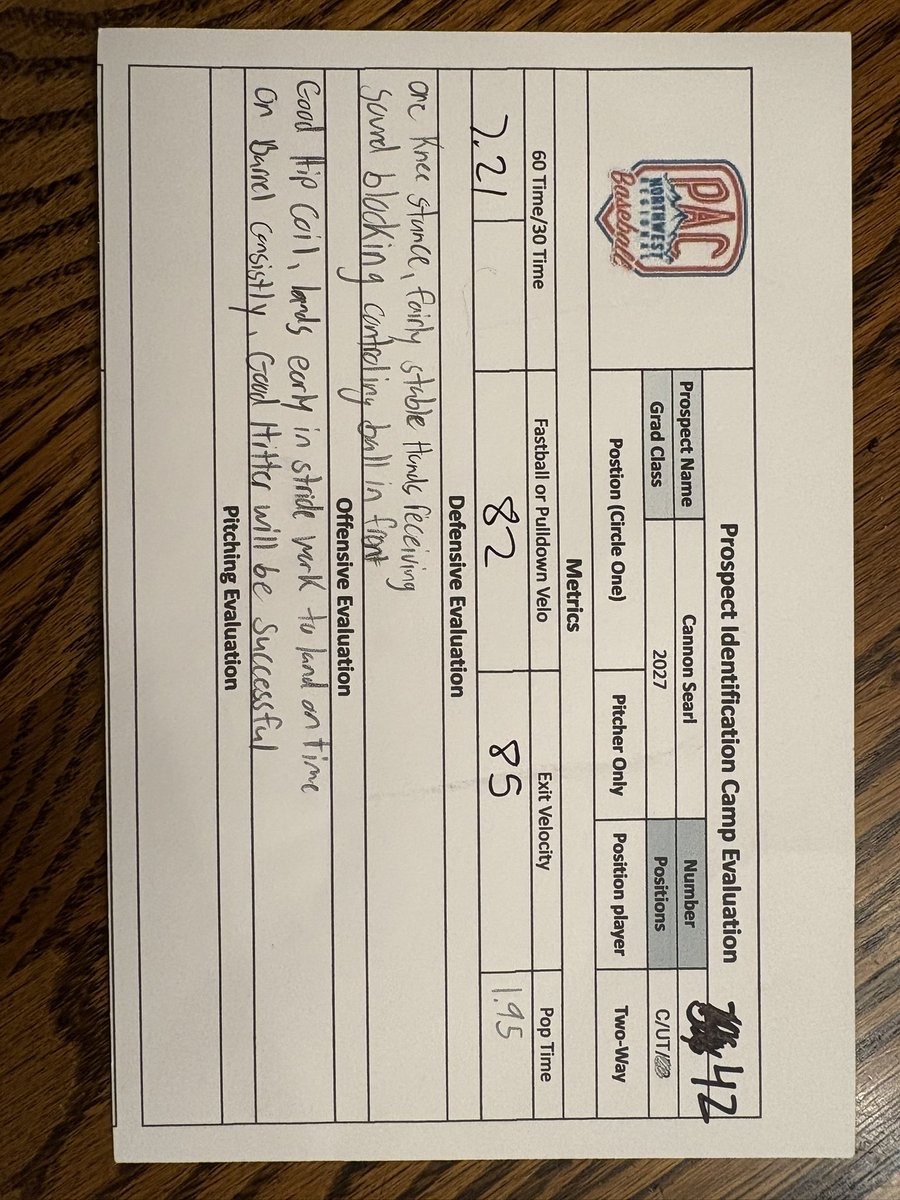 PAC
NORTHWEST
REGIONAL
Baseball
Prospect Identification Camp Evaluation
Prospect Name Cannon Searl Number 42
Grad Class 2027 Positions C/UT/
Postion (Circle One) Pitcher Only Position player Two-Way
Metrics
60 Time/30 Time Fastball or Pulldown Velo Exit Velocity Pop Time
7.21 82 85 1.95
Defensive Evaluation
one Knee stance, fairly stable Hands receiving
sound blocking controling ball in front
Offensive Evaluation
Good Hip Coil, lands early in stride work to land on time
On Barrel Consistly, Good Hitter will be successful
Pitching Evaluation